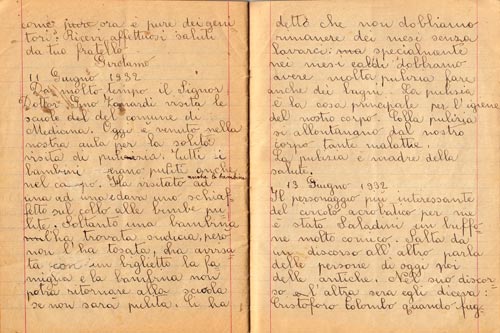 come pure ora e pure dei geni
tori. Ricevi affettuosi saluti
da tuo fratello
Girolamo
11 Giugno 1932
Da molto tempo il Signor
Dottor Zanardi visita le
scuole del del comune di
Medicina. Oggi è venuto nella
nostra aula per la solita
visita di pulizia. Tutti i
bambini erano puliti anche
anche le bambine
nel campo. Ha visitato ad
una ad una e dava uno schiaf
fetto sul collo alle bimbe pu
lite. Soltanto una bambina
l'ha trovata sudicia, però
non l'ha tosata. Ha avvisa
ta con un biglietto la fa
miglia e la bambina non
potrà ritornare alla scuola
se non sarà pulita. Ci ha
detto che non dobbiamo
rimanere dei mesi senza
lavarci: ma specialmente
nei mesi caldi dobbiamo
avere molta pulizia fare
anche dei bagni. La pulizia
è la cosa principale per l'igiene
del nostro corpo. Colla pulizia
si allontanano dal nostro
corpo tante malattie.
La pulizia è madre della
salute.
13 Giugno 1932
Il personaggio più interessante
del circolo acrobatico per me
è stato Saladini un buffo
ne molto comico. Salta da
un discorso all'altro parla
delle persone di oggi poi
delle antiche. Nel suo discor
so e l'altra sera egli diceva:
Cristoforo Colombo quando fug